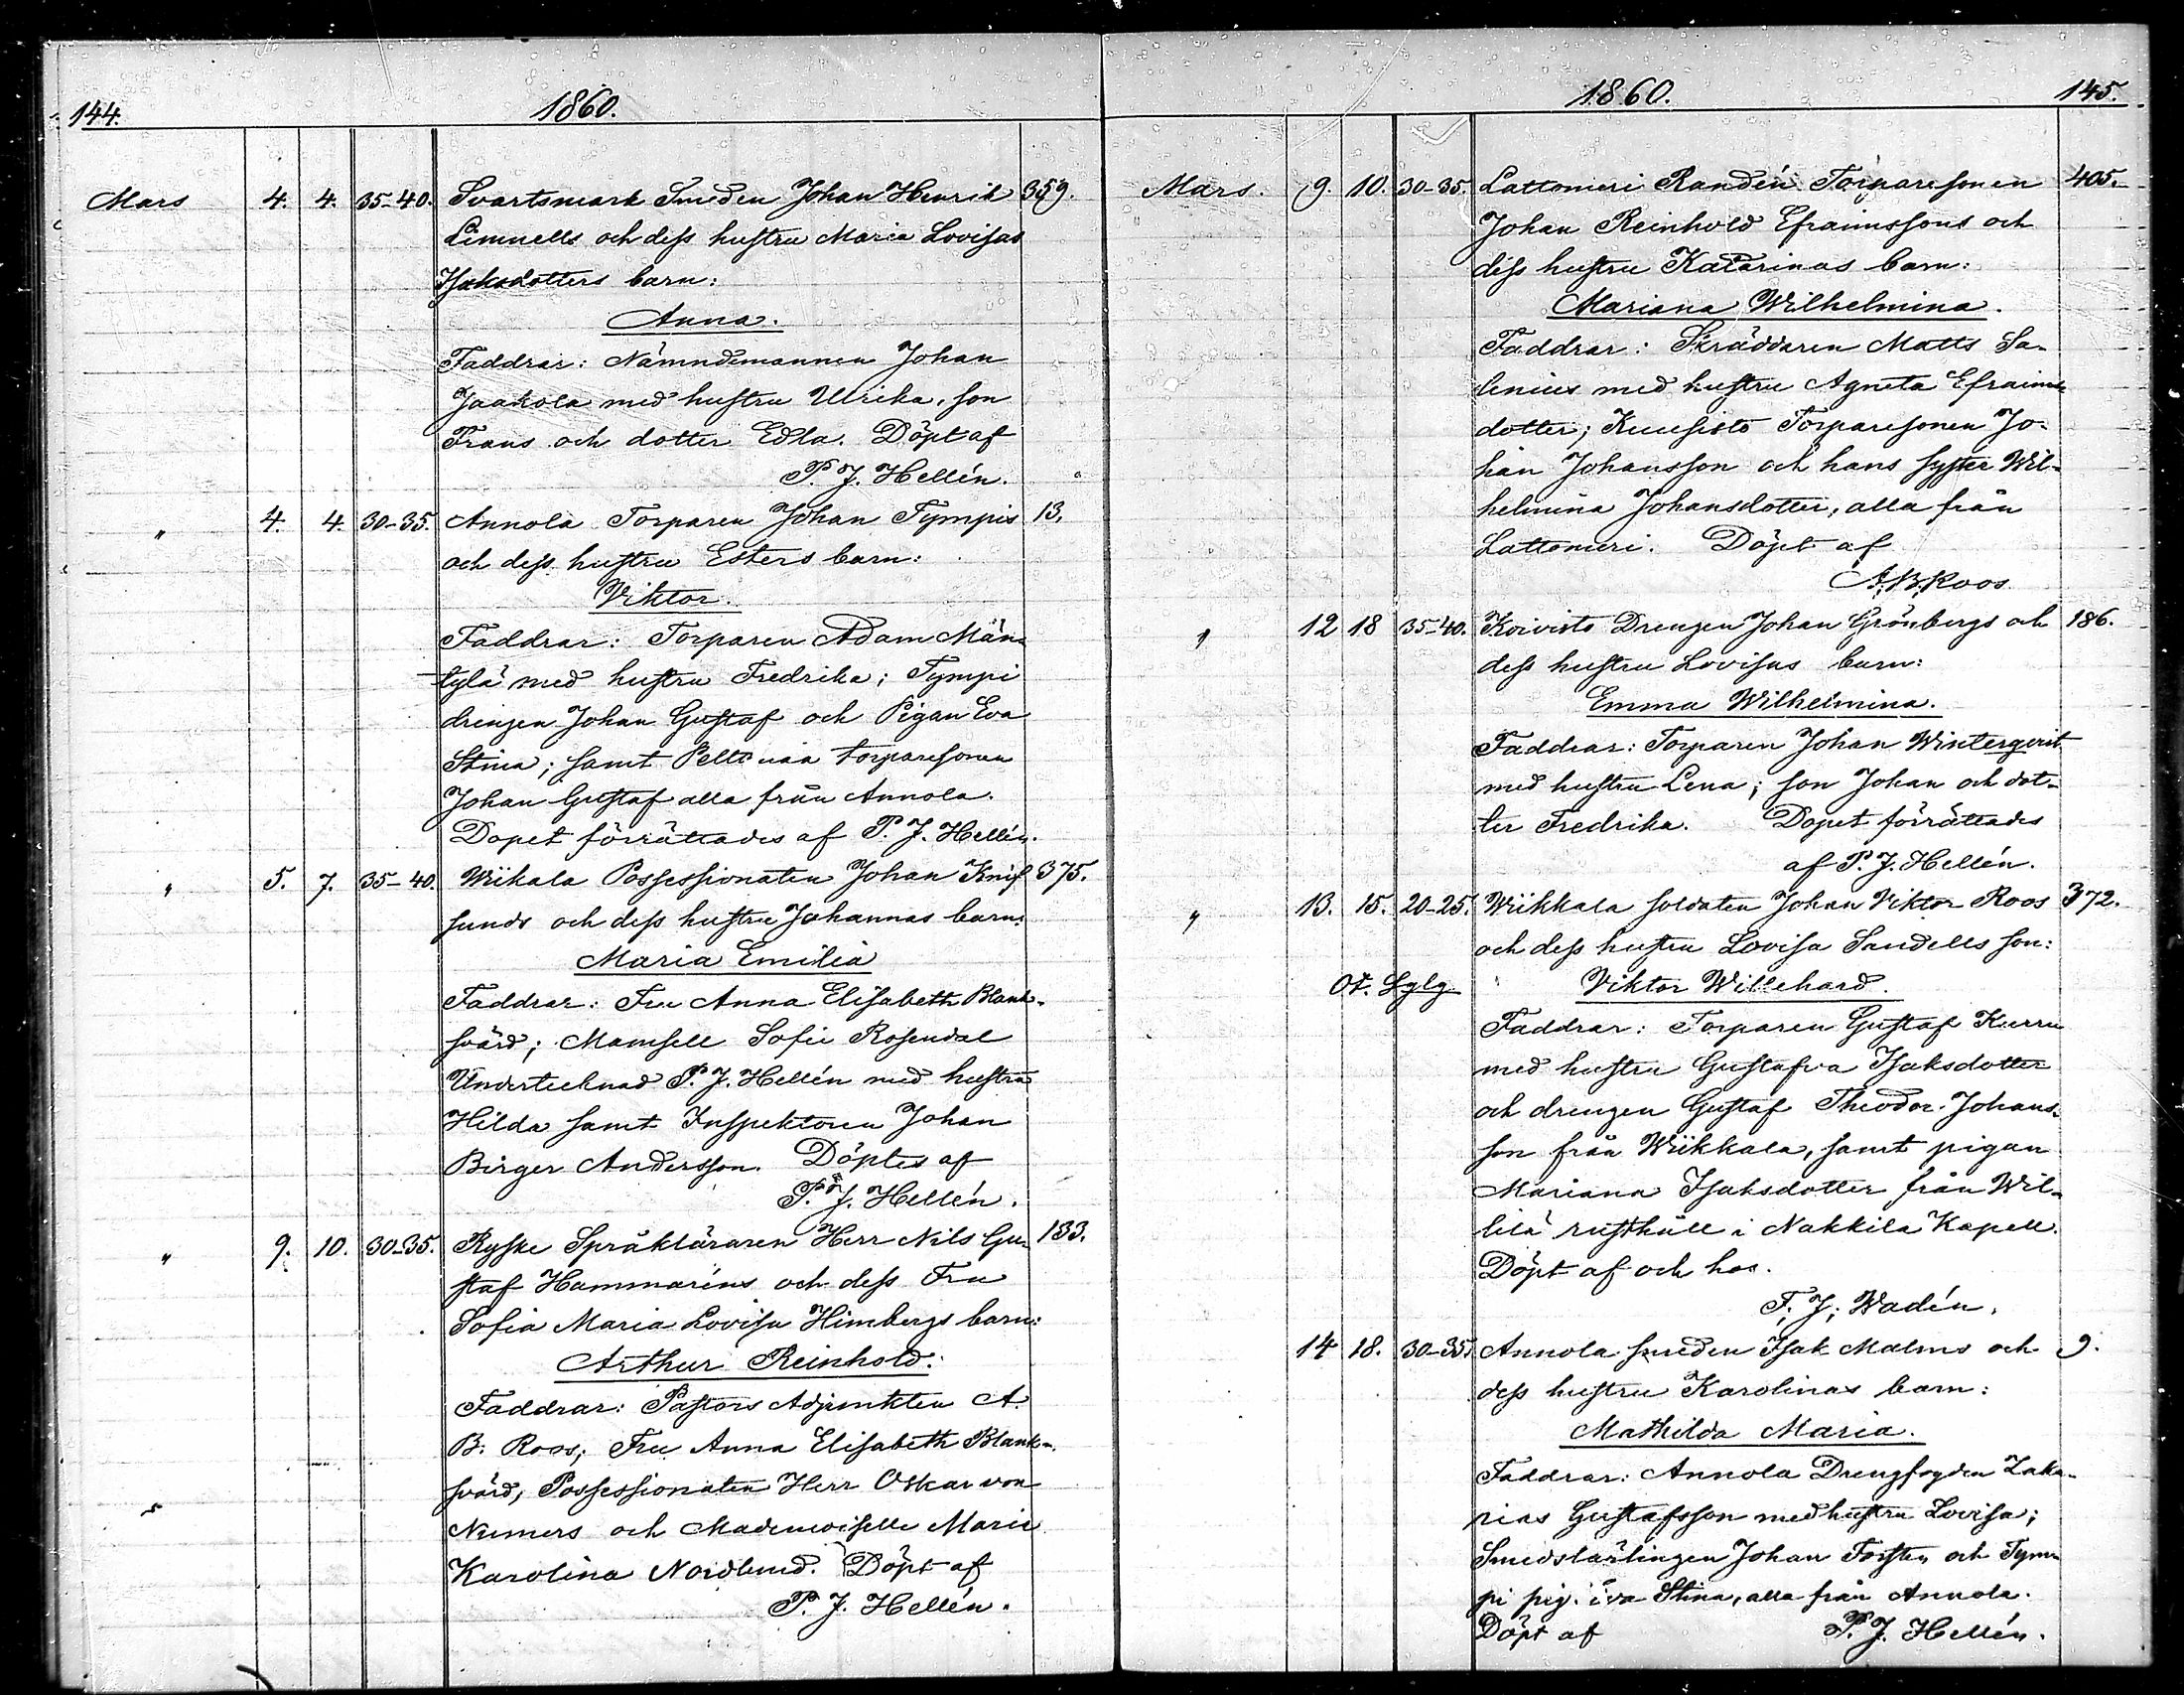 144. 1860.
Mars 4. 4. 35-40. Svartsmark Smeden Johan Henrik 359.
Limnells och dess hustru Maria Lovisas
Isaksdotters barn:
Anna.
Faddrar: Nämndemannen Johan
Jaakola med hustru Ulrika, son
Frans och dotter Edla. Döpt af
P. J. Hellén.
" 4. 4. 30-35. Annola Torparen Johan Tympis 13.
och dess hustru Esters barn:
Viktor.
Faddrar: Torparen Adam Män-
tylä med hustru Fredrika; Tympi
drengen Johan Gustaf och Pigan Eva
Stina; samt torparesonen
Johan Gustaf alla från Annola.
Dopet förrättades af P. J. Hellén.
" 5. 7. 35-40. Wiikala Possessionaten Johan Knif 375.
sunds och dess hustru Johannas barn:
Maria Emilia
Faddrar: Fru Anna Elisabeth Blank-
svärd; Mamsell Sofie Rosendal
Undertecknad P. J. Hellén med hustru
Hilda samt Inspektoren Johan
Birger Andersson. Döptes af
P. J. Hellén.
" 9. 10. 30-35. Ryske Språkläraren Herr Nils Gu- 133.
staf Hammaréns och dess Fru
Sofia Maria Lovisa Himbergs barn:
Arthur Reinhold.
Faddrar: Pastors Adjunkten A.
B. Roos; Fru Anna Elisabeth Blank-
svärd, Possessionaten Herr Oskar von
Numers och Mademoiselle Marie
Karolina Nordlund. Döpt af
P. J. Hellén.
1860. 145.
Mars. 9. 10. 30-35. Lattomeri Randén Torparesonen 405.
Johan Reinhold Efraimssons och
dess hustru Katarinas barn:
Mariana Wilhelmina.
Faddrar: Skräddaren Matts Sa-
lenius med hustru Agneta Efraims
dotter; Kuusisto Torparesonen Jo-
han Johansson och hans syster Wil-
helmina Johansdotter, alla från
Lattomeri. Döpt af
A. B. Roos
" 12 18 35-40. Koivisto Drengen Johan Grönbergs och 186.
dess hustru Lovisas barn:
Emma Wilhelmina.
Faddrar: Torparen Johan Winterqvist
med hustru Lena; son Johan och dot-
ter Fredrika. Dopet förrättades
af P. J. Hellén.
" 13. 15. 20-25. Wiikkala soldaten Johan Viktor Roos 372.
och dess hustru Lovisa Sandells son:
Viktor Willehard.
Faddrar: Torparen Gustaf Kurru
med hustru Gustafva Isaksdotter
och drengen Gustaf Theodor Johans-
son från Wiikkala, samt pigan
Mariana Isaksdotter från Wil-
lilä rusthåll i Nakkila Kapell.
Döpt af och hos.
F. J. Wadén.
14 18. 30-35. Annola smeden Isak Malms och 9.
dess hustru Karolinas barn:
Mathilda Maria.
Faddrar: Annola Drengfogden Zaka-
rias Gustafsson med hustru Lovisa;
Smedslärlingen Johan Forstén och Tym-
pi pig. Eva Stina, alla från Annola.
Döpt af P. J. Hellén.